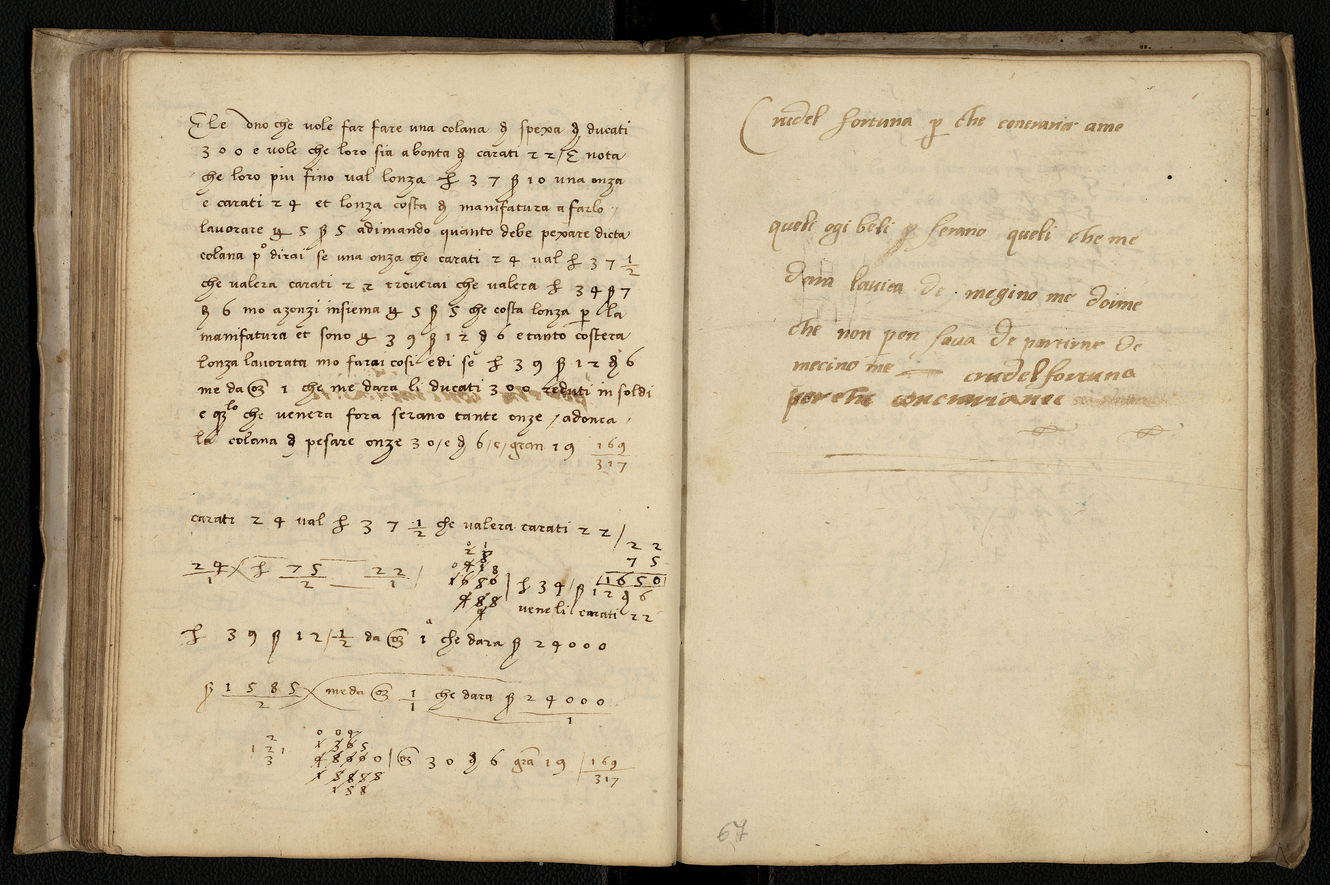 Ele uno che vole far fare una colana d spexa d ducati
300 e vole che loro sia a bonta d carati 22 / E nota
che loro piu fino val lonza £ 37 ß 10 una onza
e carati 24 et lonza costa d manifatura a farlo
lavorare £ 5 ß 5 adimando quanto debe pexare dicta
colana po dirai se una onza che carati 24 val £ 37 1/2
che valera carati 22 troverai che valera £ 34 ß 7
d 6 mo azonzi insiema £ 5 ß 5 che costa lonza p la
manifatura et sono £ 39 ß 12 d 6 e tanto costera
lonza lavorata mo farai cosi e di se £ 39 ß 12 d 6
me da oz 1 che me dara li ducati 300 reduti in soldi
e qlo che venera fora serano tante onze / adonca
la colana d pesare onze 30 / e d 6 / e / gran 19 169/317
carati 24 val £ 37 1/2 che valera carati 22 /
22
75
1650
24/1 £ 75/2 22/1
£ 34 / ß
12 d 6
vene li carati 22
£ 39 ß 12 / 1/2 da oz 1 che dara ß 24000
ß 1585/2 me da oz 1/1 che dara ß 24000/1
oz 30 d 6 gra 19 / 169/317
Crudel fortuna p che contraria ame
queli ogi beli serano queli che me
dana la vita de megino me doime
che non pon de partirme de
mecino me crudel fortuna
perche
67